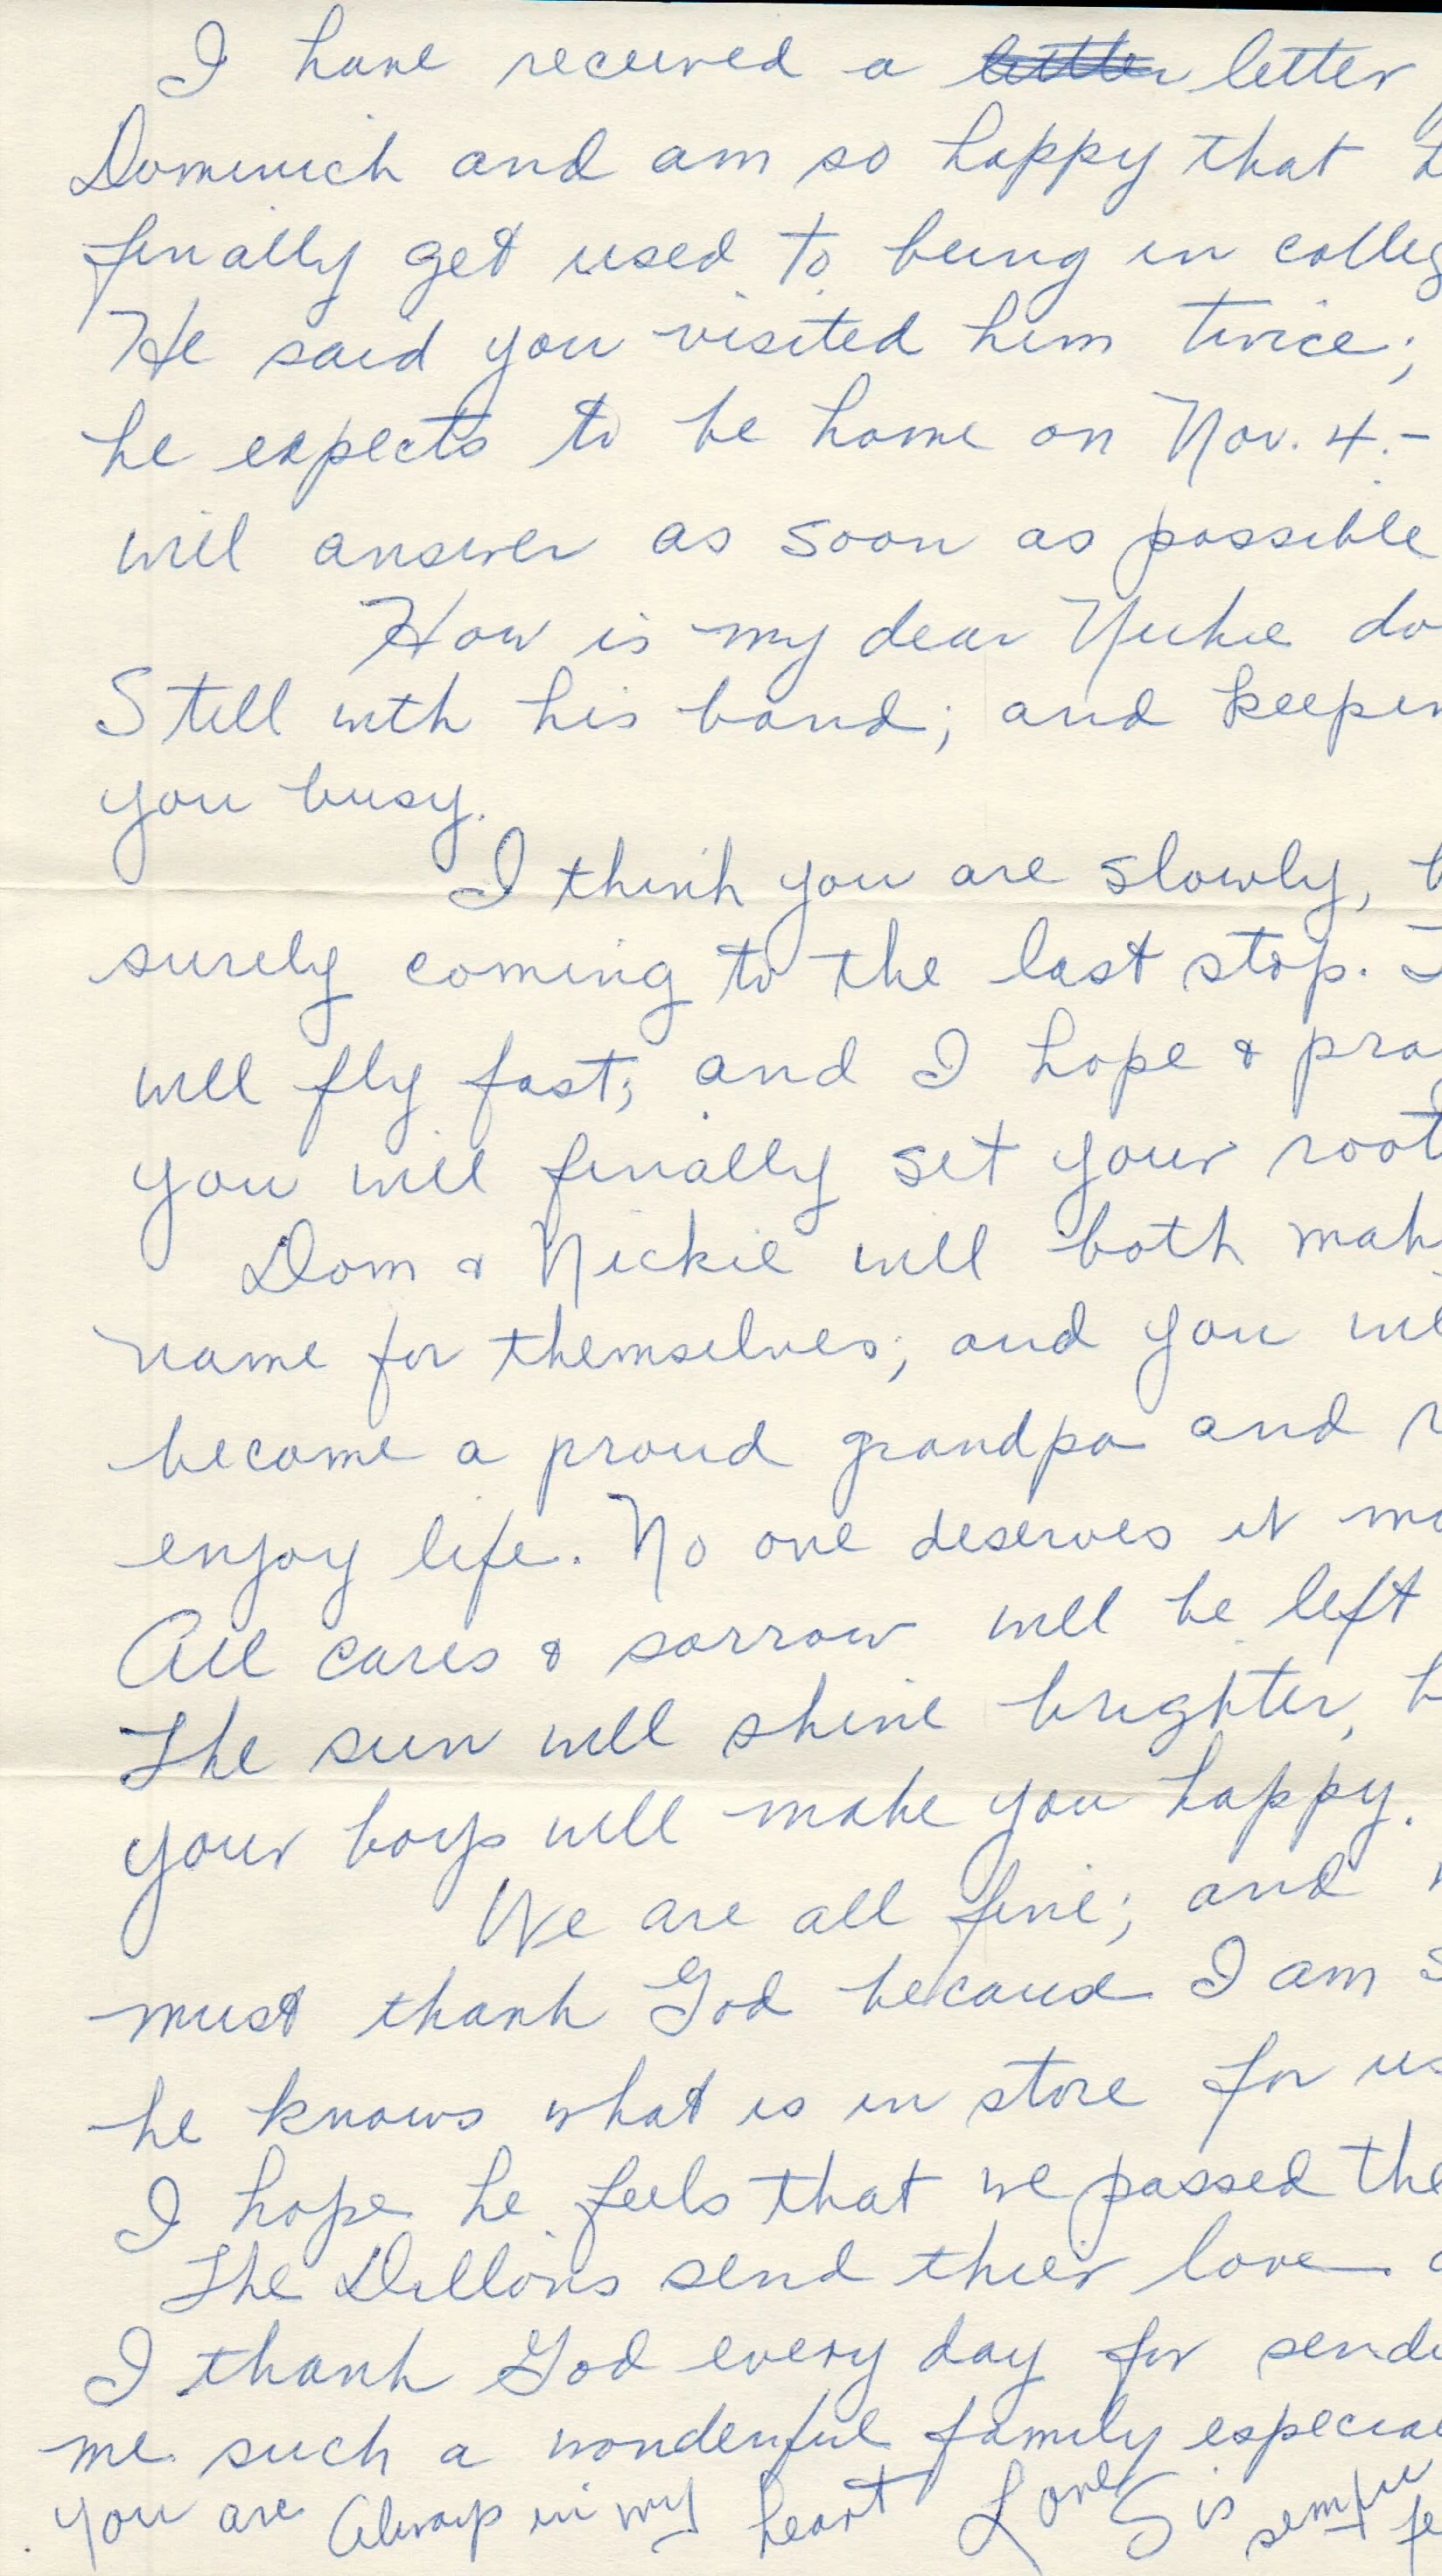 I have received a letter
Dominick and am so happy that
finally get used to being in colleg
He said you visited him twice;
he expects to be home on Nov. 4.-
will answer as soon as possible
How is my dear Nickie do
Still with his band; and keepin
you busy.
I think you are slowly, b
surely coming to the last stop. T
will fly fast; and I hope & pray
you will finally set your root
Dom & Nickie will both mak
name for themselves; and you wil
become a proud grandpa and r
enjoy life. No one deserves it mo
All cares & sorrow will be left
The sun will shine brighter, b
your boys will make you happy.
We are all fine; and w
must thank God because I am s
he knows what is in store for us
I hope he feels that we passed the
The Dillons send thier love a
I thank God every day for sendi
me such a wonderful family especial
you are always in my heart Love Sis sempre fe